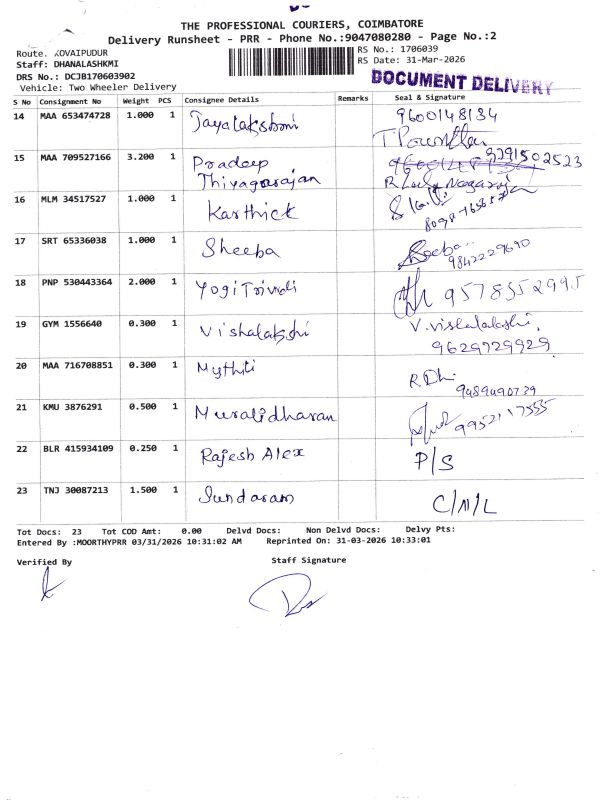 THE PROFESSIONAL COURIERS, COIMBATORE
Delivery Runsheet - PRR - Phone No.:9047080280 - Page No.:2
Route. KOVAIPUDUR
RS No.: 1706039
Staff: DHANALASHKMI
RS Date: 31-Mar-2026
DRS No.: DCJB170603902
DOCUMENT DELIVERY
Vehicle: Two Wheeler Delivery
S No Consignment No Weight PCS Consignee Details Remarks Seal & Signature
14 MAA 653474728 1.000 1 Jayalakshmi 9600148134
15 MAA 709527166 3.200 1 Pradeep Thiyagarajan 3291502523
16 MLM 34517527 1.000 1 Karthick
17 SRT 65336038 1.000 1 Sheeba Sheeba 9842229690
18 PNP 530443364 2.000 1 Yogi Trivedi 9578352995
19 GYM 1556640 0.300 1 Vishalakshi V. Vishalakshi, 9629729929
20 MAA 716708851 0.300 1 Mythili R.Dhi 9489490739
21 KMU 3876291 0.500 1 Muralidharan 9952117555
22 BLR 415934109 0.250 1 Rajesh Alex P/S
23 TNJ 30087213 1.500 1 Sundaram C/M/L
Tot Docs: 23 Tot COD Amt: 0.00 Delvd Docs: Non Delvd Docs: Delvy Pts:
Entered By :MOORTHYPRR 03/31/2026 10:31:02 AM Reprinted On: 31-03-2026 10:33:01
Verified By Staff Signature